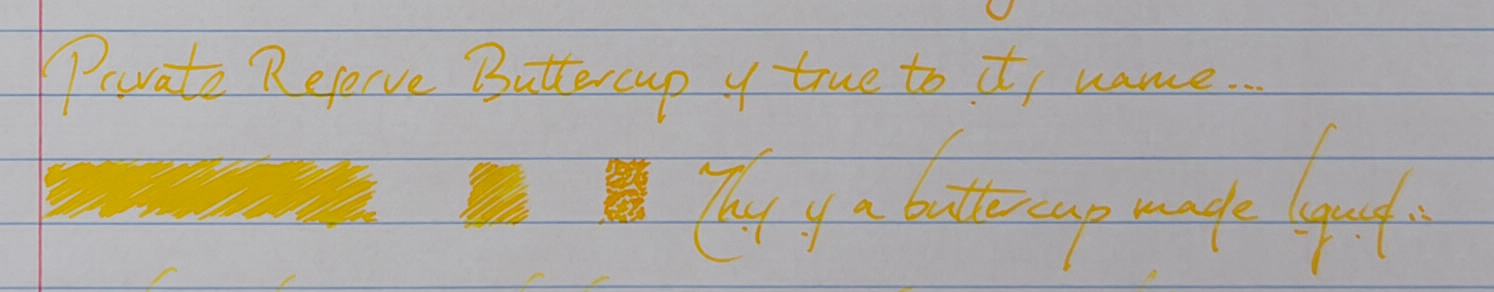 Private Reserve Buttercup is true to its name...
This is a buttercup made liquid...